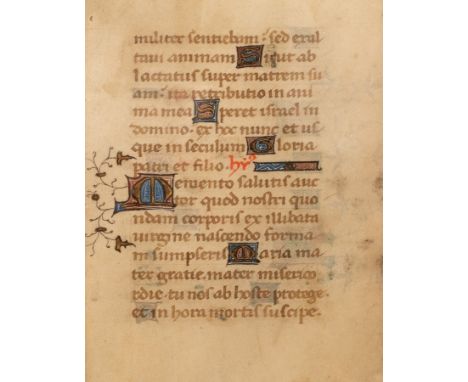 militer sentiebam · sed exal
tavi animam Sicut ab
lactatus super matrem su
am · ita retributio in ani
ma mea Speret israel in
domino · ex hoc nunc et us
que in seculum Gloria
patri et filio · hys
Memento salutis auc
tor quod nostri quo
ndam corporis ex illibata
virgine nascendo forma
m sumpseris Maria ma
ter gratie · mater miserico
rdie · tu nos ab hoste protege ·
et in hora mortis suscipe ·